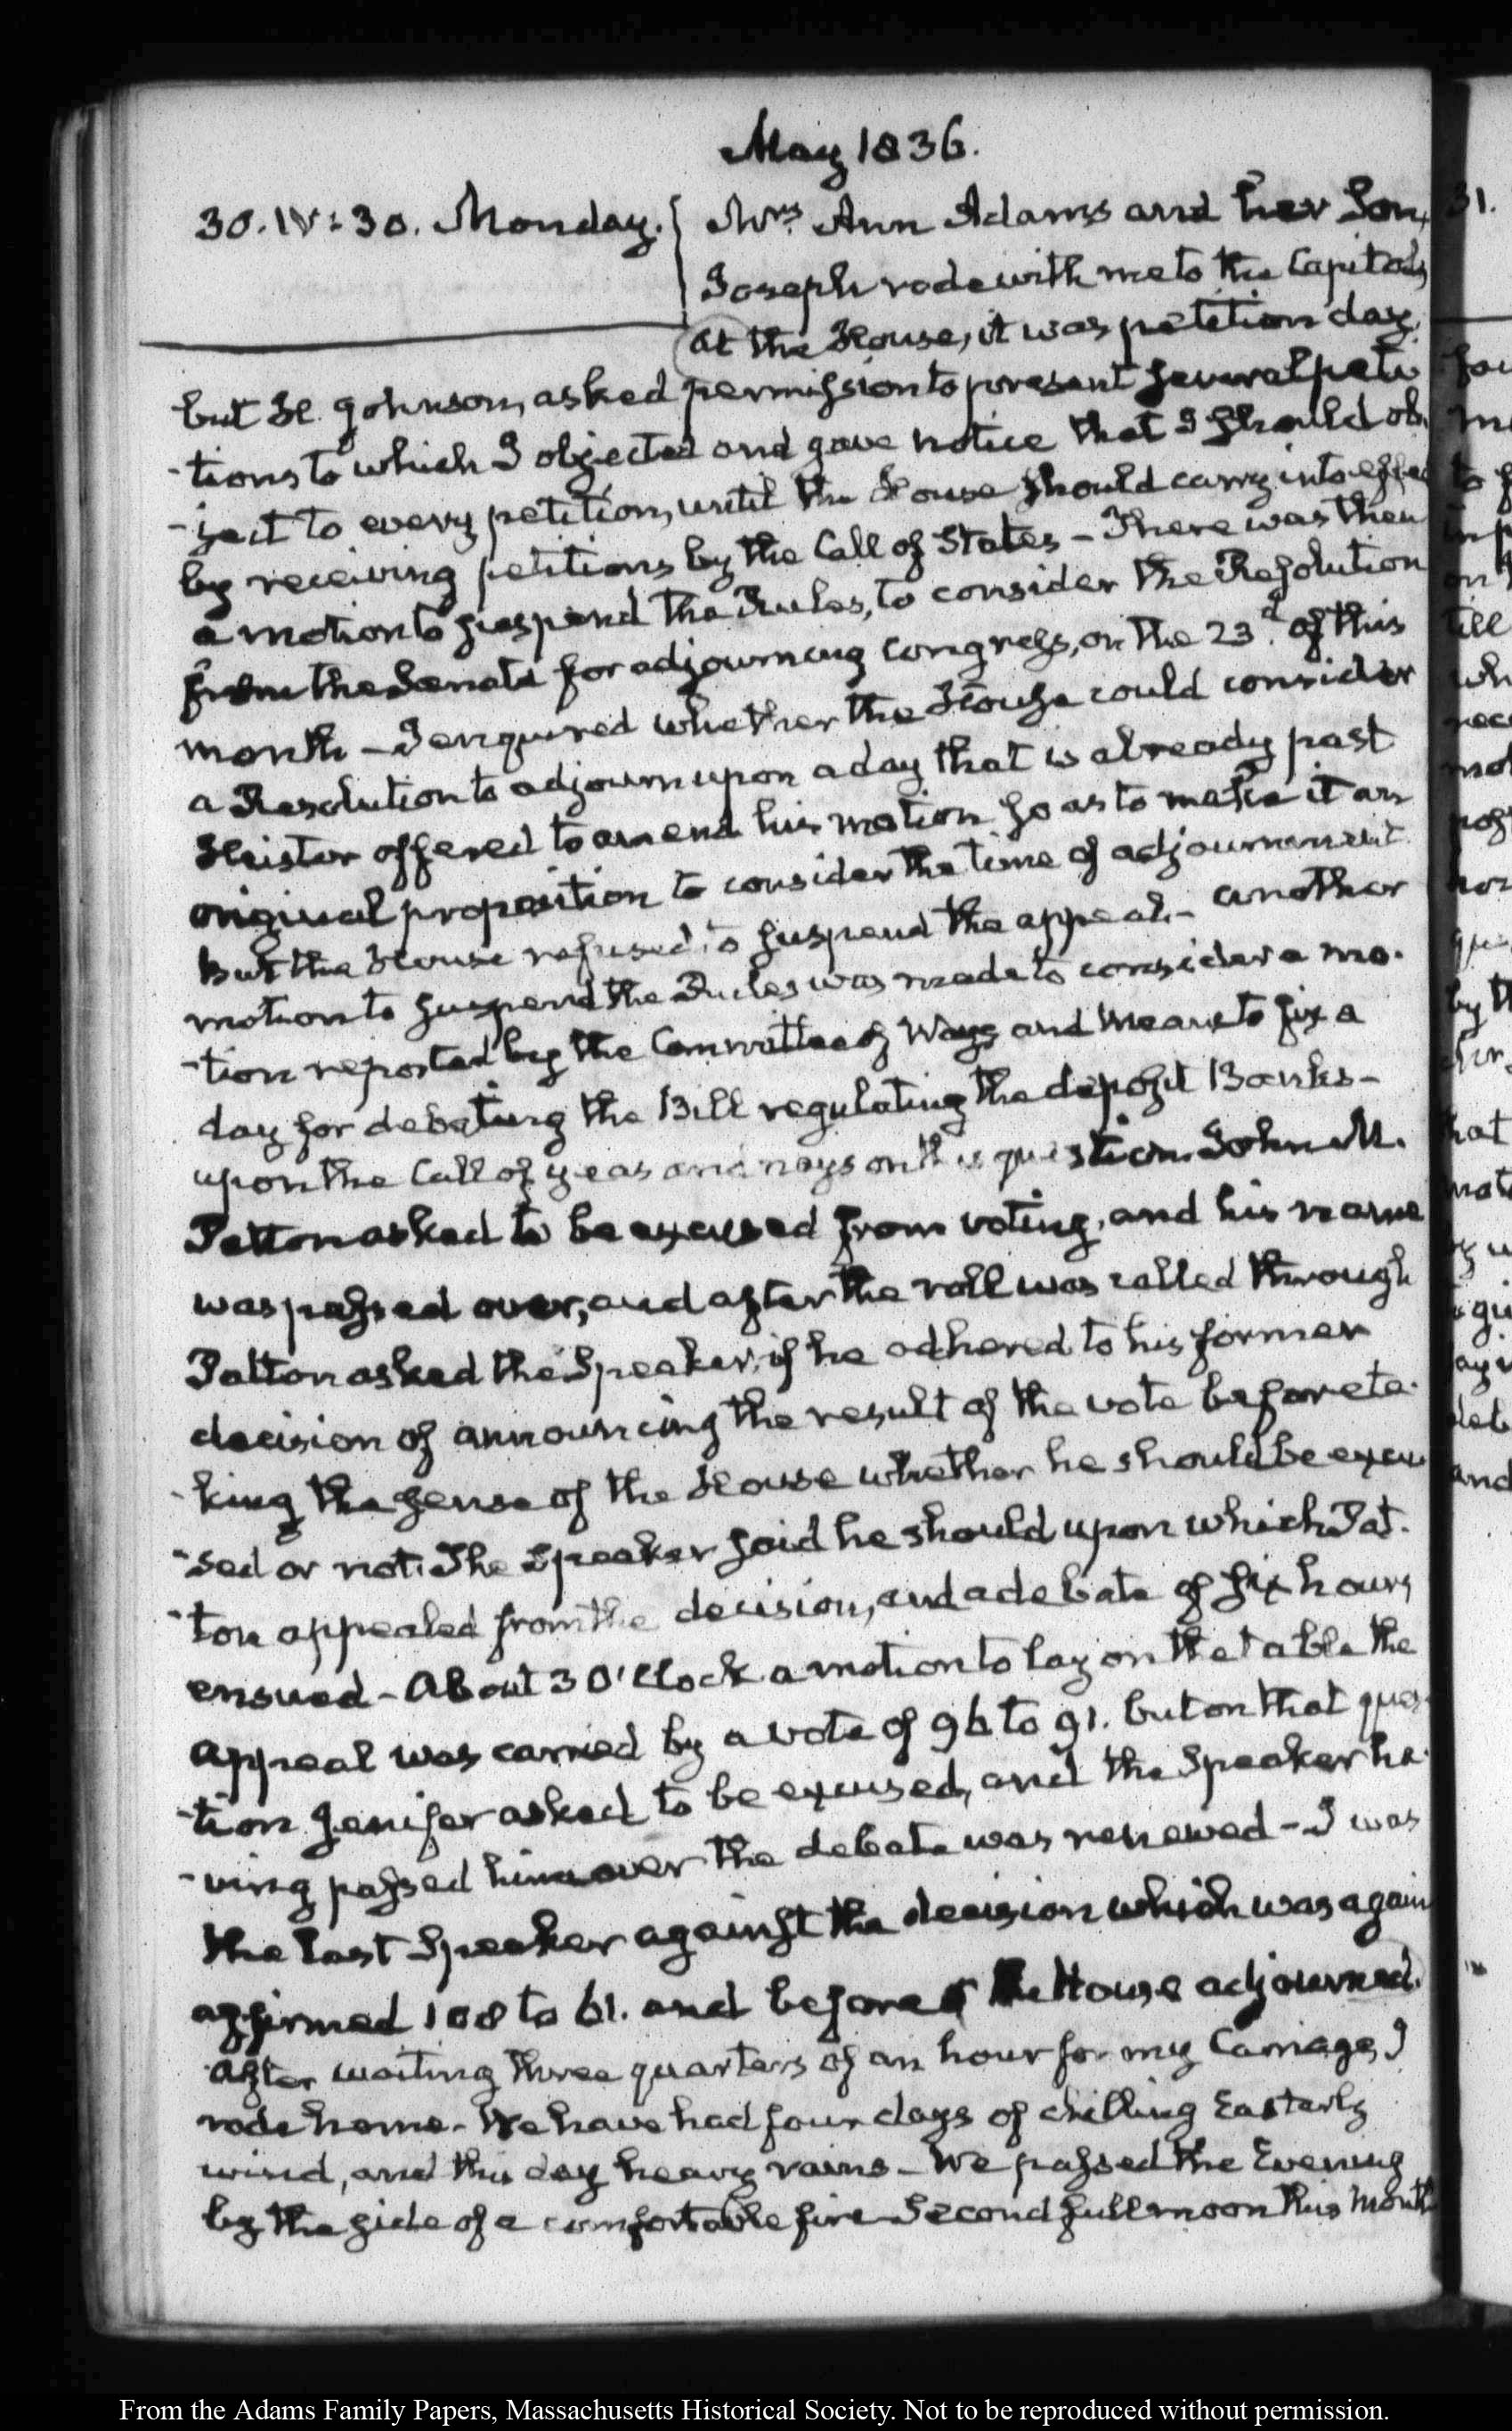 May 1836.
30. IV:30. Monday. { Mrs. Ann Adams and her Son,
Joseph rode with me to the Capitol,
At the House, it was petition day,
but H. Johnson, asked permission to present several peti
-tions to which I objected and gave notice that I should ob
-ject to every petition, until the House should carry into effec
by receiving petitions by the Call of States - There was then
a motion to suspend the Rules, to consider the Resolution
from the Senate for adjourning Congress, on the 23d. of this
month - I enquired whether the House could consider
a Resolution to adjourn upon a day that is already past
Heister offered to amend his motion so as to make it an
original proposition to consider the time of adjournment
But the House refused to suspend the appeal - another
motion to suspend the Rules was made to consider a mo-
-tion reported by the Committee of Ways and Means to fix a
day for debating the Bill regulating the deposit Banks -
upon the Call of yeas and nays on this question John M.
Patton asked to be excused from voting, and his name
was passed over, and after the roll was called through
Patton asked the Speaker, if he adhered to his former
decision of announcing the result of the vote before ta-
-king the sense of the House whether he should be excu
-sed or not. The Speaker said he should upon which Pat-
-ton appealed from the decision, and a debate of six hours
ensued - About 3 O'Clock a motion to lay on the table the
appeal was carried by a vote of 96 to 91. but on that ques
-tion Jenifer asked to be excused, and the Speaker ha-
-ving passed him over the debate was renewed - I was
the last Speaker against the decision which was again
affirmed 108 to 61. and before 5 the House adjourned.
After waiting three quarters of an hour for my Carriage, I
rode home. We have had four days of chilling Easterly
wind, and this day heavy rains - We passed the Evening
by the side of a comfortable fire Second full moon this Month
31.
From the Adams Family Papers, Massachusetts Historical Society. Not to be reproduced without permission.